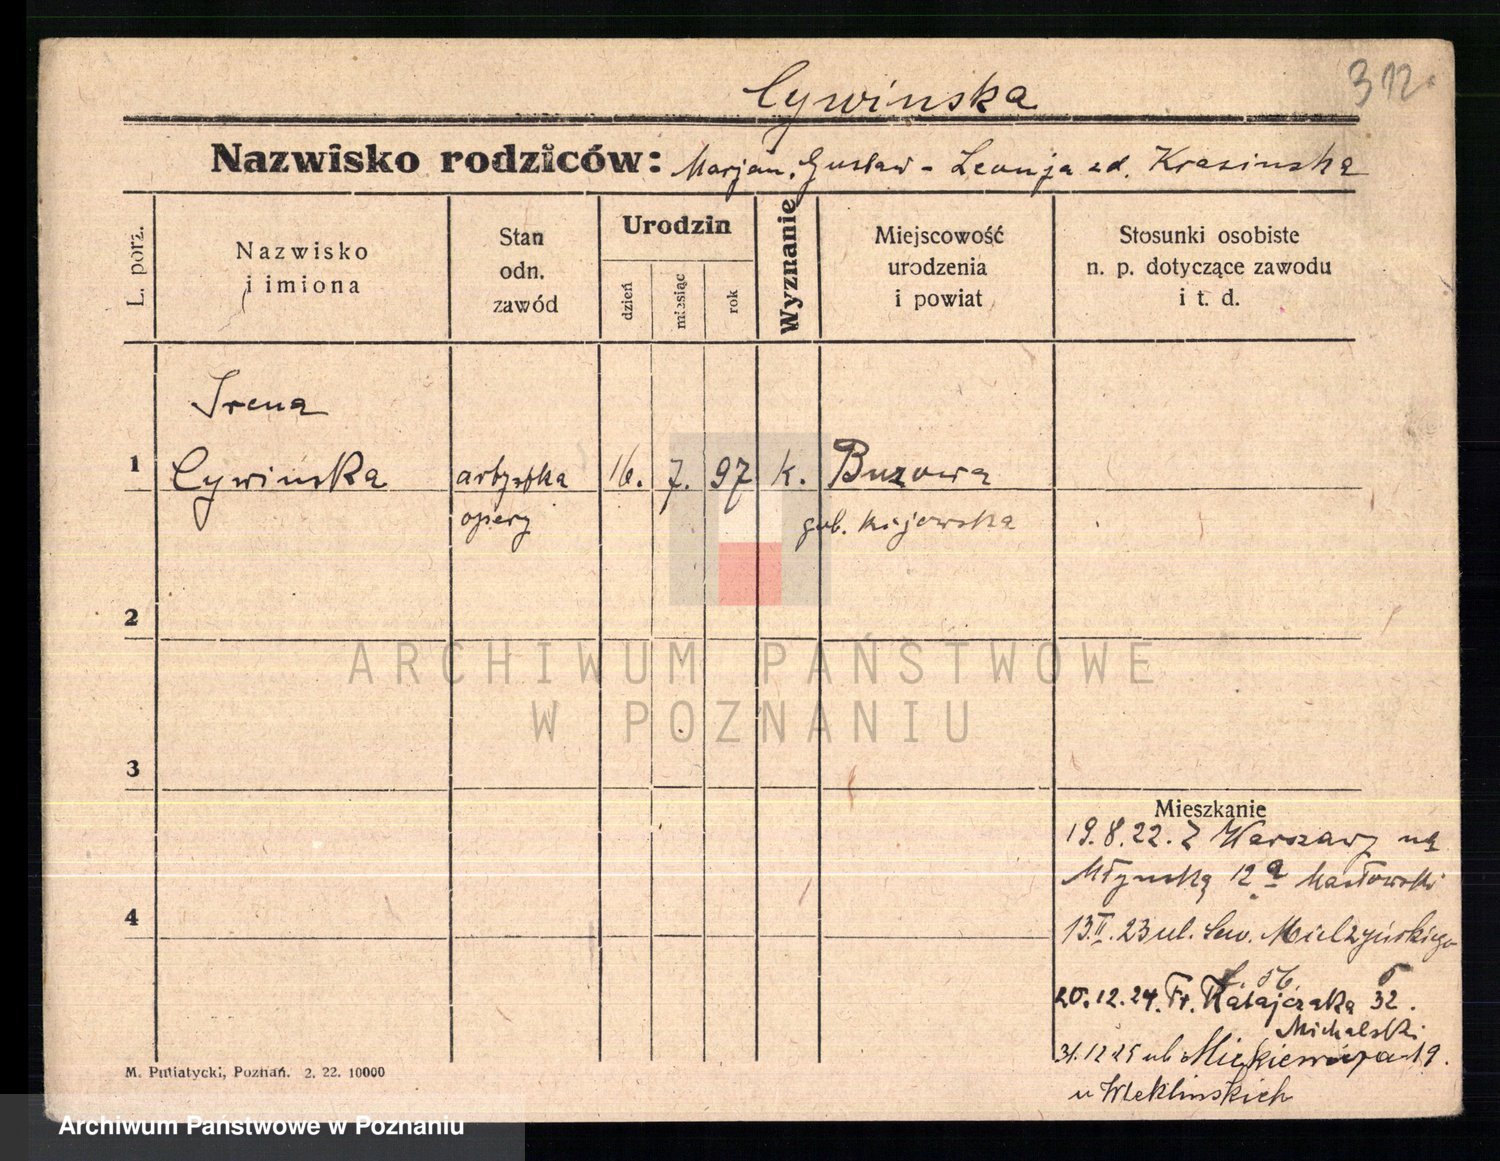 Cywinska
312.
Nazwisko rodziców: Marjan, Gustaw - Leonja zd. Krasinska
L. porz.
Nazwisko i imiona
Stan odn. zawód
Urodzin
dzień
miesiąc
rok
Wyznanie
Miejscowość urodzenia i powiat
Stosunki osobiste n. p. dotyczące zawodu i t. d.
Irena
1 Cywińska artystka 16. 7. 97 k. Buzowa
opery gub. Kijowska
2
ARCHIWUM PAŃSTWOWE
W POZNANIU
3
Mieszkanie
19.8.22. Z Warszawy na
Młyńską 12a Masłowski
4
13.II.23 ul. Sew. Mielżyńskiego
20.12.24. Fr. Ratajczaka 32.
Michalski
31.12 25 ul. Mickiewicza 19.
u Wleklinskich
M. Putiatycki, Poznań. 2. 22. 10000
Archiwum Państwowe w Poznaniu